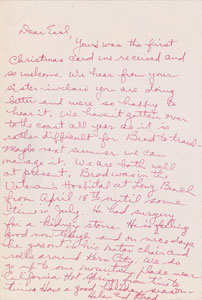 Dear Earl,
Yours was the first
Christmas card we received and
so welcome. We hear from your
sister-in-law you are doing
better and were so happy to
hear it. We haven't gotten over
to the coast all year as it is
rather difficult for Brod to travel.
Maybe next summer we can
manage it. We are both well
at present. Brod was in the
Veteran's Hospital at Long Beach
from April 18th until some
time in July. He had surgery
for a kidney stone. He is feeling
good now though and on nice days
he gets out in his motor chair and
rolls around Kern City. We do
go up to our mountain place near
times. Have a good
Helen and